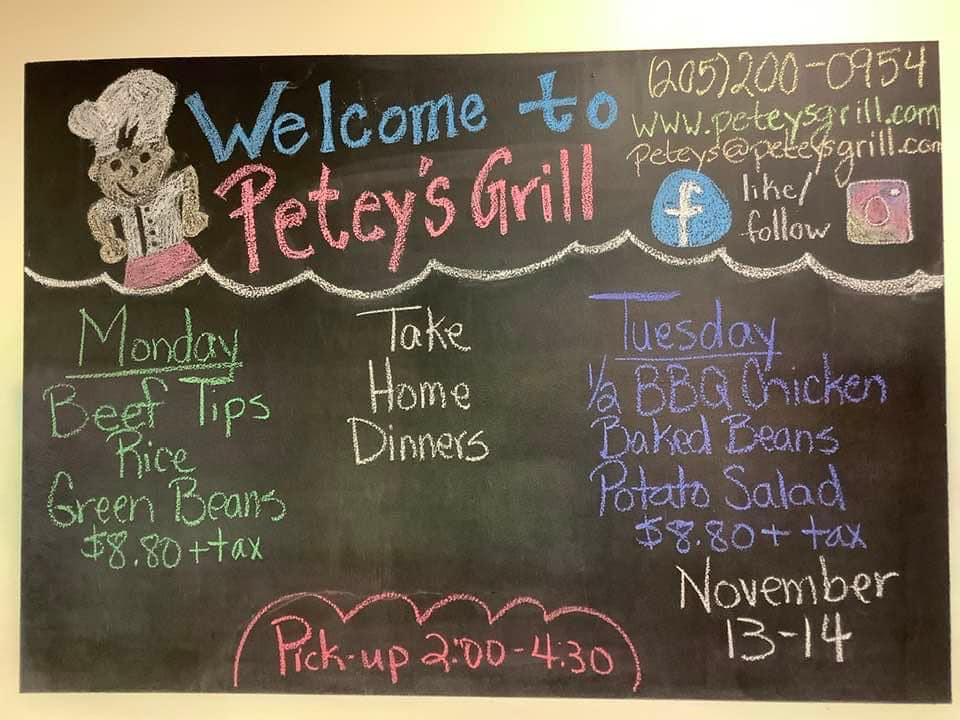 Welcome to
Petey's Grill
(205)200-0954
www.peteysgrill.com
peteys@peteysgrill.com
f
like/
follow
Monday
Beef Tips
Rice
Green Beans
$8.80 + tax
Take
Home
Dinners
Tuesday
1/2 BBQ Chicken
Baked Beans
Potato Salad
$8.80 + tax
November
13-14
Pick-up 2:00-4:30